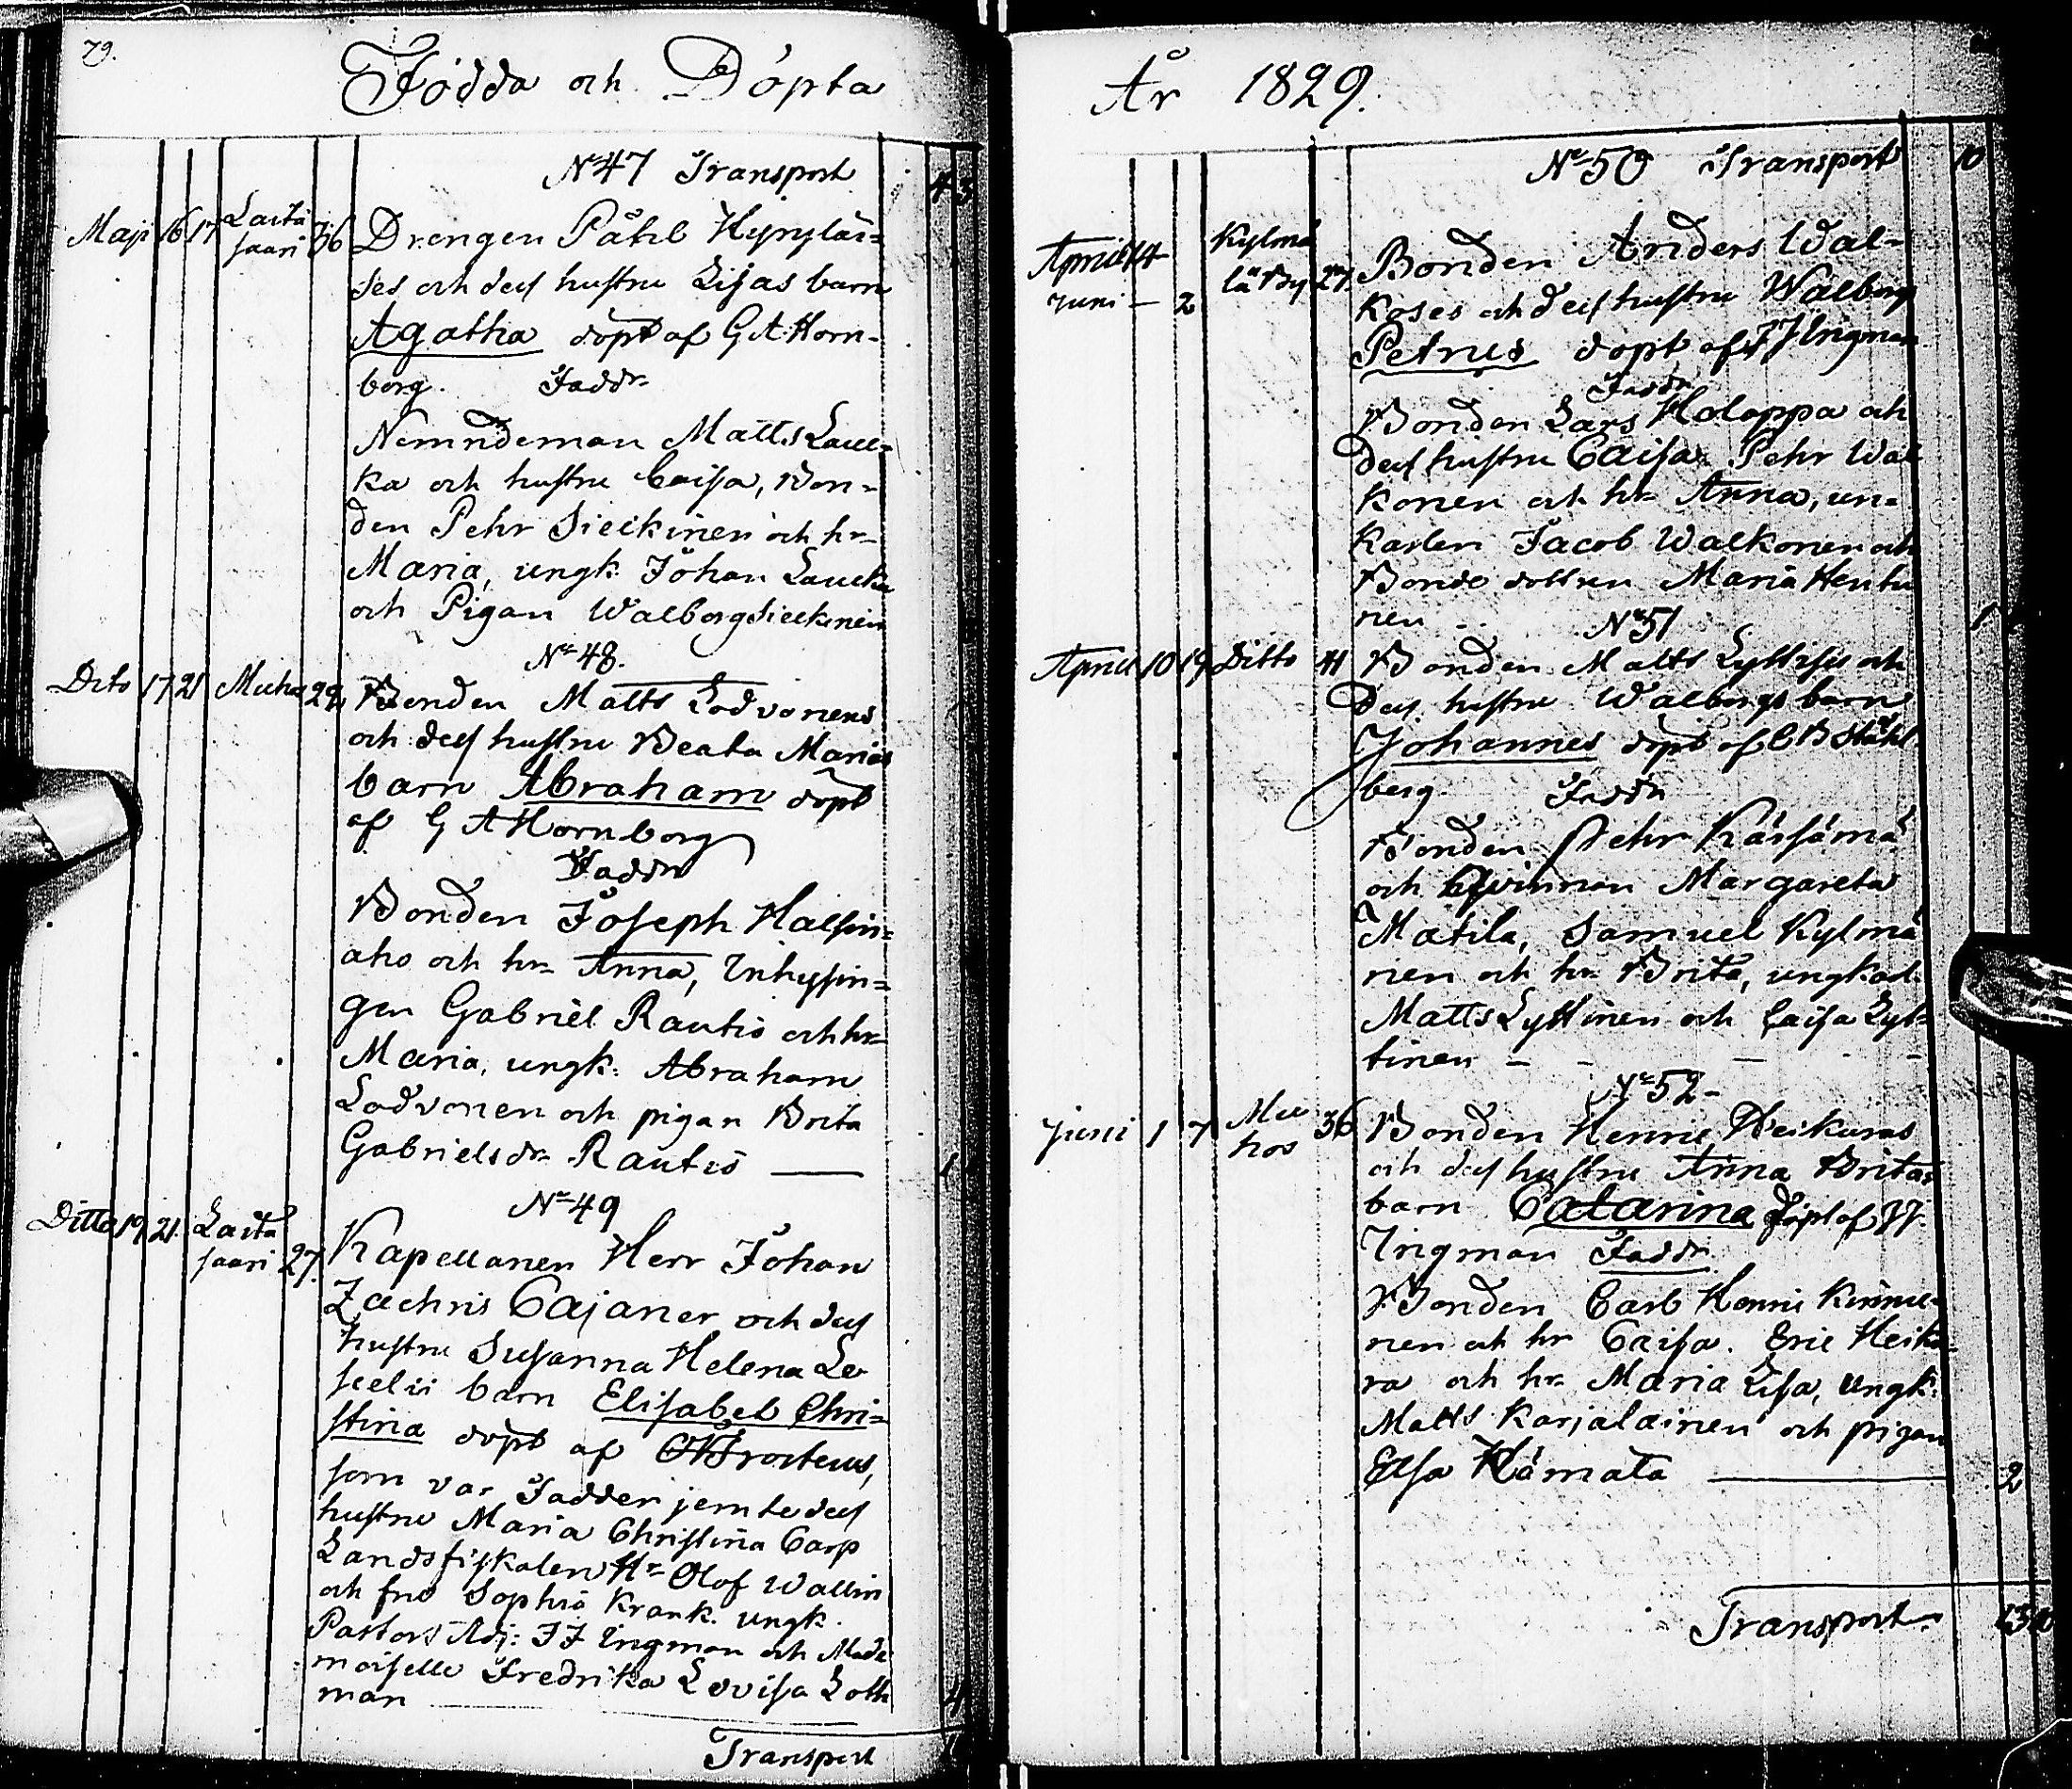 79.
Födda och Döpta
N° 47 Transport
Maji 16 17 Laita
saari 36 Drengen Påhl Hyryläi=
ses och dess hustru Lisas barn
Agatha döpt af G A Horn-
borg. Faddr
Nemndeman Matts Lauc-
ka och hustru Caisa, Bon-
den Pehr Sieckinen och hr
Maria, ungk: Johan Laucka
och Pigan Walborg Sieckinen
N° 48.
Dito 17 21 Muhos 29 Bonden Matts Lodvonens
och dess hustru Beata Marias
barn Abraham döpt
af G A Hornborg
Faddr
Bonden Joseph Halsin=
aho och hr Anna, Inhysin=
gen Gabriel Rautio och hr
Maria, ungk: Abraham
Lodvonen och pigan Brita
Gabrielsdr Rautio 1
N° 49
Ditto 19 21 Laita
saari 27. Kapellanen Herr Johan
Zachris Cajaner och dess
hustru Susanna Helena Le
barn Elisabet Chri=
stina döpt af
som var Fadder jemte dess
hustru Maria Christina Carp
Landsfiskalen Hr Olof Wallin
och fru Sophia Krank. ungk.
Pastors Adj: J J Ingman och Made
moiselle Fredrika Lovisa Loth
man 4
Transport
År 1829.
N° 50 Transport 10
April 14
Juni — 2 Kylmä
lä By 27. Bonden Anders Wal-
koses och dess hustru Walborg
Petrus döpt af J J Ingman
Faddr
Bonden Lars Holappa och
dess hustru Caisa. Pehr Wal
konen och hr Anna, un-
karlen Jacob Walkonen och
Bonde dottren Maria Hentu
nen 1
N° 51
April 10 19 Ditto 41 Bonden Matts Lyttises och
dess hustru Walborgs barn
Johannes döpt af C B Ståhl
berg. Faddr
Bonden Pehr Kärsämä
och Qvinnan Margareta
Matila, Samuel Kylmä
nen och hr Brita, ungkarl
Matts Lyttinen och Caisa Lyt-
tinen
N° 52
Juni 1 7 Mu
hos 36 Bonden Henric Heikuras
och dess hustru Anna Britas
barn Catarina döpt af J J.
Ingman Faddr
Bonden Carl Henric Kinnu-
nen och hr Caisa. Eric Heiku-
ra och hr Maria Lisa, Ungk:
Matts Karjalainen och pigan
Elsa Hämätä 2
Transport